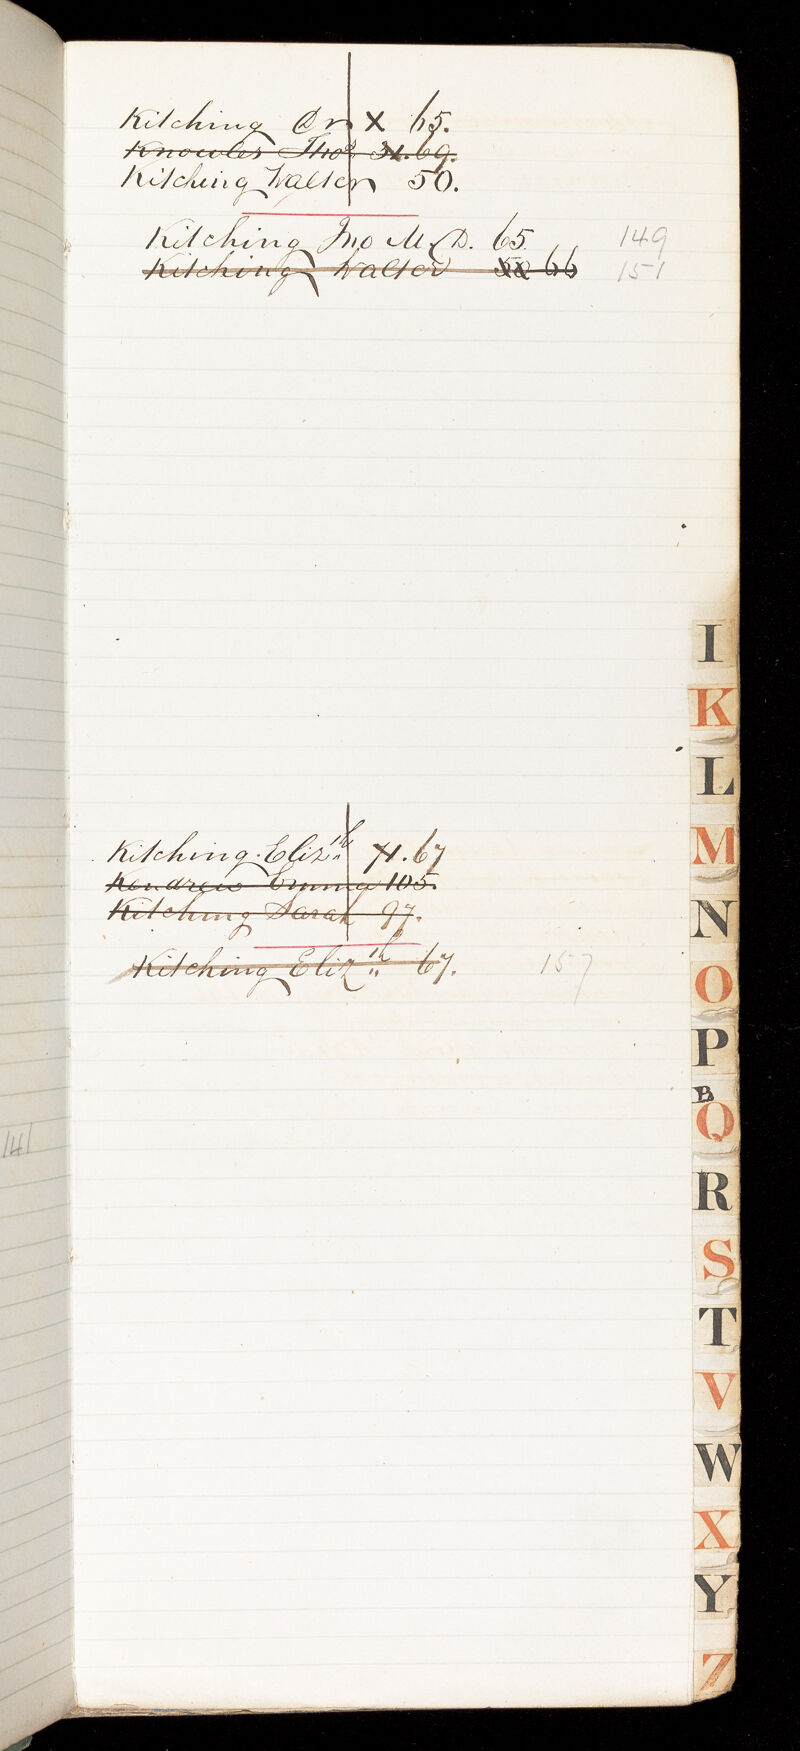 Kitching Dr X 65.
Knowles Thos 31. 69.
Kitching Walter 50.
Kitching Jno M.D. 65. 149
Kitching Walter 66 151
I
K
L
M
Kitching Elizth 71. 67
Kendrew Emma 105.
Kitching Sarah 97.
N
Kitching Elizth 67. 157
O
P
B
Q
141
R
S
T
V
W
X
Y
Z